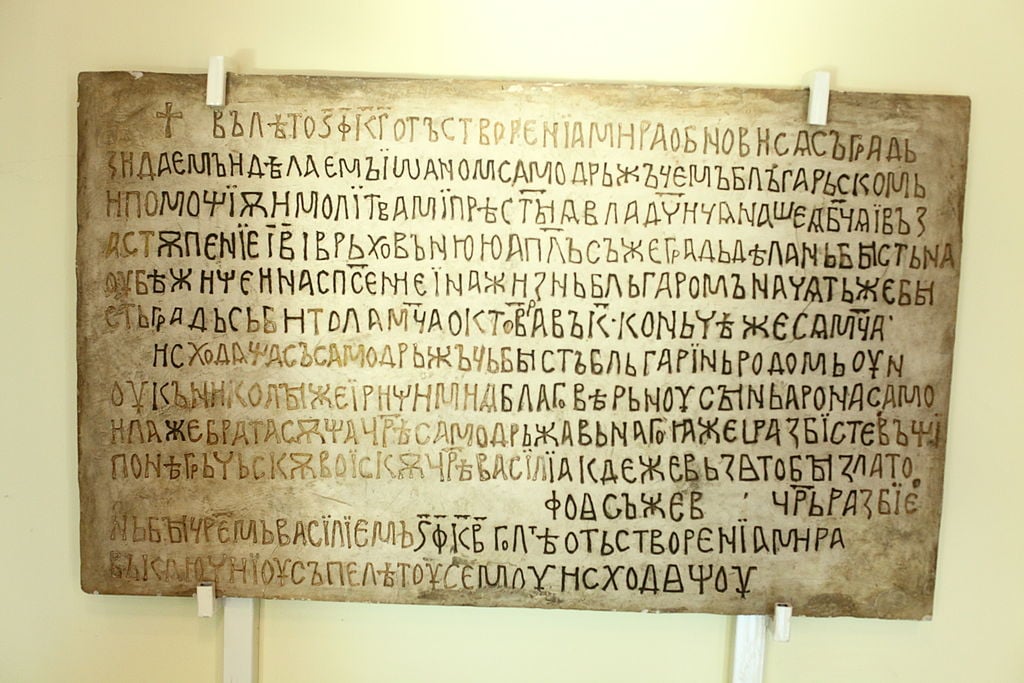 † ВЪЛѢТОЅ҃Ф҃К҃Г҃ОТЪСТВОРЕНЇАМИРАОБНОВИСАСЪГРАДЬ
ЗИДАЕМЪИДѢЛАЕМЪЇѠАНОМСАМОДРЬЖЪЧЕМЪБЛЪГАРЬСКОМЬ
ИПОМОЩЇѪИМОЛІТВАМІПРѢСТ҃ЫѦВЛАДЧ҃ИЧѦНАШЕѦБ҃ЧѦЇВЪЗ
АСТѪПЕНЇЕІ҃В҃ІВРЬХОВЪНЮЮАП҃ЛЪСЪЖЕГРАДЬДѢЛАНЬББЫСТЬНА
ОУБѢЖИЩЕИНАСПС҃ЕНИЕЇНАЖИЗНЬБЛЬГАРОМЪНАЧѦТЬЖЕБЫ
СТЬГРАДЬСЬБИТОЛАМЦ҃АОКТОВ҃РАВЪК҃·КОНЬЧѢЖЕСАМЦ҃А·
ИСХОДАЩАСЪСАМОДРЬЖЪЧЬБЫСТЪБЛЬГАРЇНЬРОДОМЬОУН
ОУКЪНИКОЛЫЖЕЇРИѰИМИДБЛАГОВѢРЬНОУСЫНЬАРОНАСАМО
ИЛАЖЕБРАТАСѪЩАЦ҃РѢСАМОДРЬЖАВЬНАГОꙖЖЕІРАЗБЇСТЕВЪЩІ
ПОНѢГРЬЧЬСКѪВОЇСКѪЦ҃РѢВАСЇЛЇАКДЕЖЕВЬЗѦТОБЫЗЛАТО
ФОДСЪЖЕВ · Ц҃РЬРАЗБЇЕ
НЬБЫЦ҃РЕМЬВАСЇЛЇЕМЬЅ҃Ф҃К҃В҃ГОЛ҃ТѢОТЬСТВОРЕНЇАМИРА
ВЪКЛЮЧНЇОУСЪПЕЛѢТОУСЕМꙊИСХОДѦЩОУ